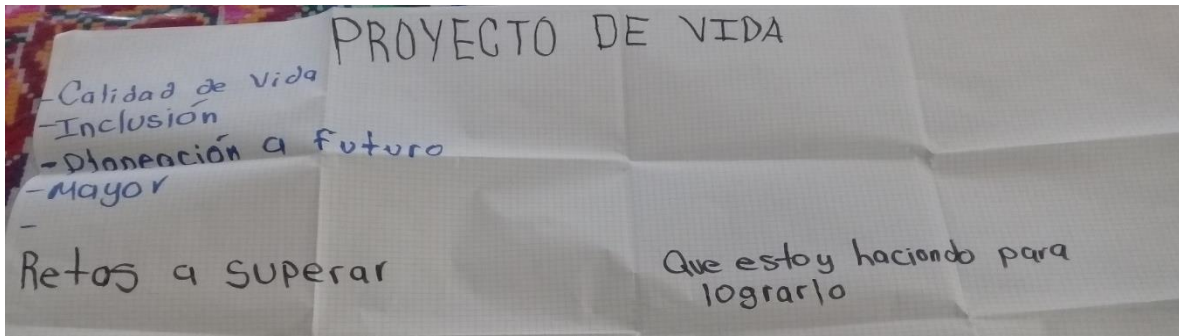 PROYECTO DE VIDA
-Calidad de vida
-Inclusión
-Planeación a futuro
-Mayor
-
Retos a superar
Que estoy haciendo para
lograrlo